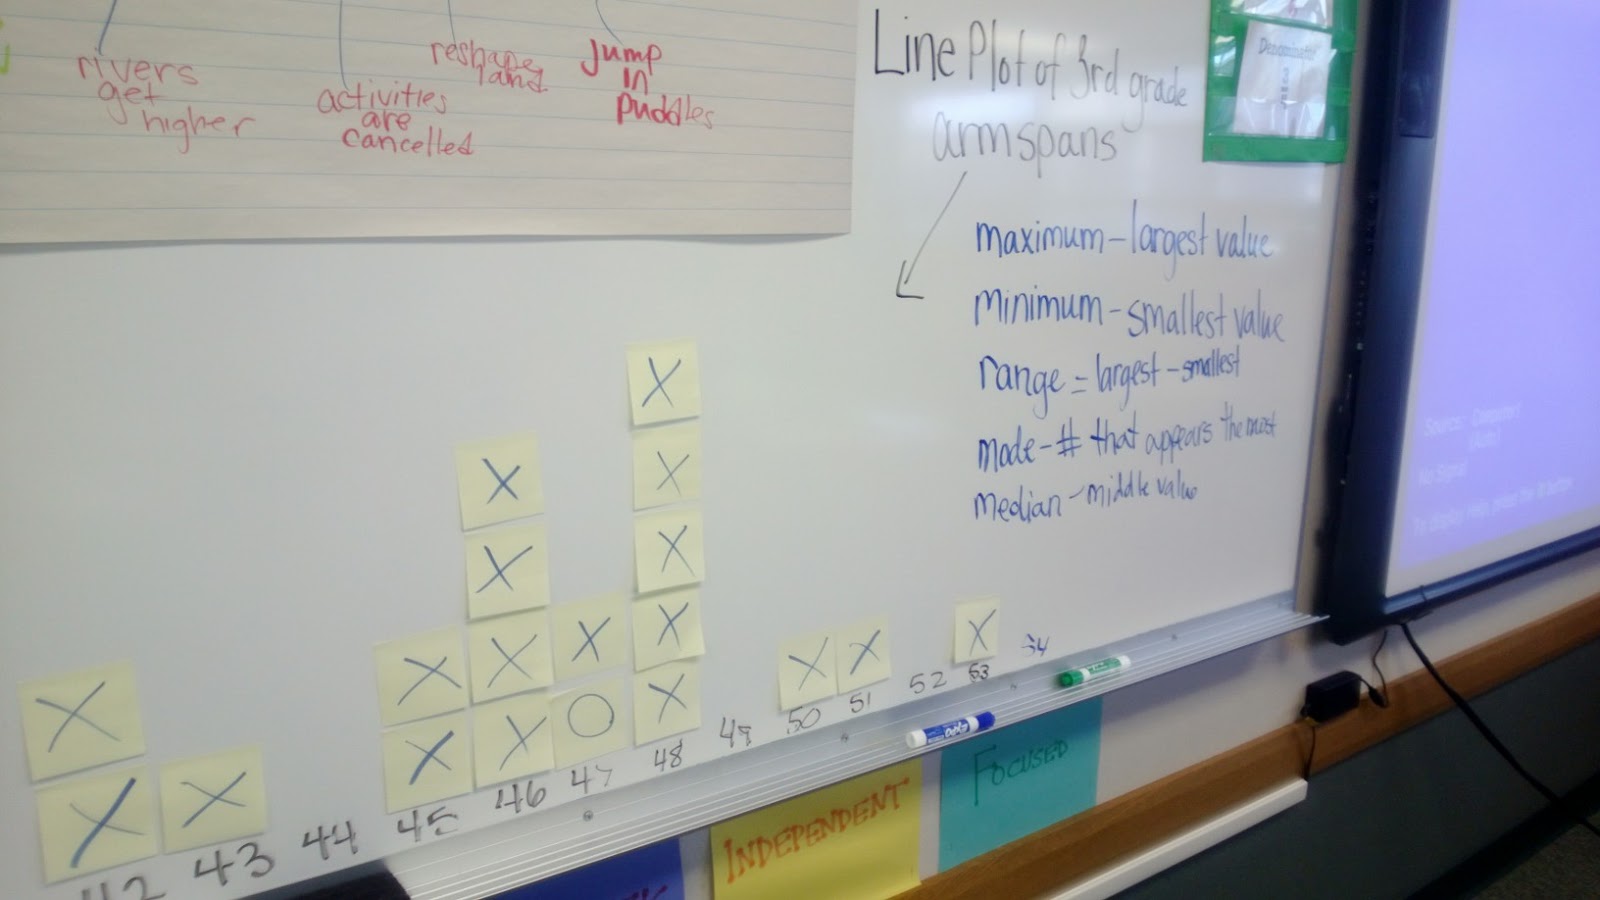 rivers
get
higher
activities
are
cancelled
reshape
land
Jump
in
puddles
Line Plot of 3rd grade
armspans
maximum - largest value
minimum - smallest value
range = largest - smallest
mode - # that appears the most
median - middle value
Denominator
3
X
X X
X X X
X X X X X
X X X O X X X X
42 43 44 45 46 47 48 49 50 51 52 53 54
EXPO
INDEPENDENT
FOCUSED
Source: Computer1
(Auto)
No Signal